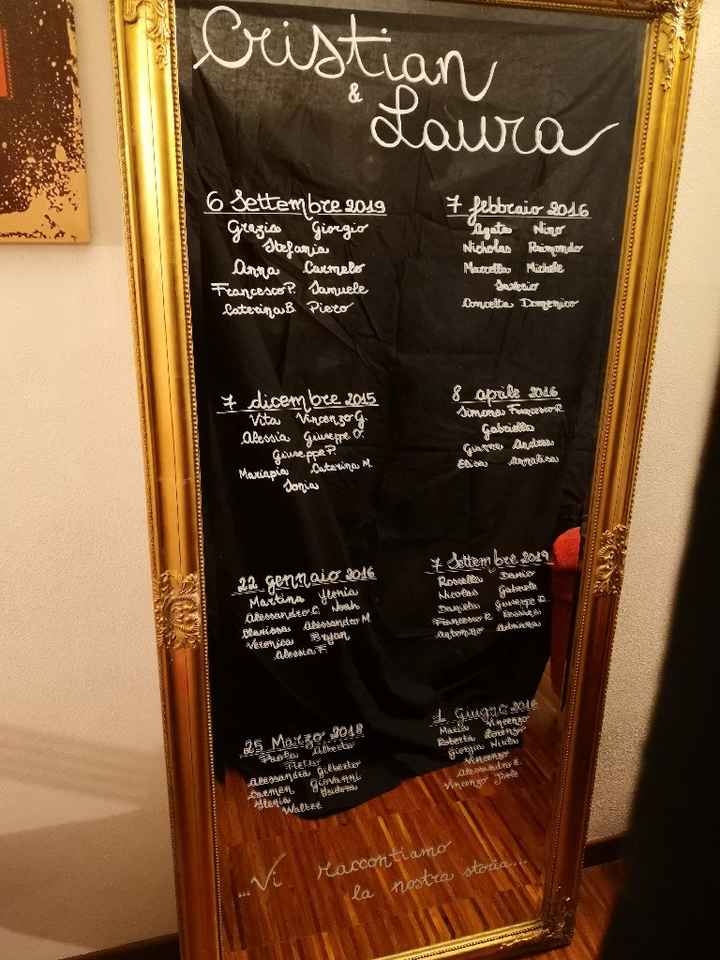 Cristian
&
Laura
6 Settembre 2019
Grazia Giorgio
Stefania
Anna Carmelo
Francesco P. Samuele
Caterina B. Piero
7 febbraio 2016
Agata Nino
Nicholas Raimondo
Marcella Michele
Saverio
Concetta Domenico
7 dicembre 2015
Vita Vincenzo G.
Alessia Giuseppe O.
Giuseppe P.
Mariapia Caterina M.
Sonia
8 aprile 2016
Simona Francesco R.
Gabriella
Andrea
Elisa Annalisa
22 gennaio 2016
Martina Ylenia
Alessandro C. Noah
Clarissa Alessandro M.
Veronica Bryan
Alessia F.
7 Settembre 2019
Rossella Danio
Nicolas Gabriele
Daniela Giuseppe R.
Francesco R. Rossana
Antonino Adriana
25 Marzo 2018
Paola Alberto
Pietro
Alessandra Gilberto
Carmen Giovanni
Ylenia Isidora
Walter
1 giugno 2016
Maria Vincenzo
Roberta Lorenzo
Giorgia Nicola
Vincenzo
Alessandro E.
Vincenzo
...Vi raccontiamo
la nostra storia...